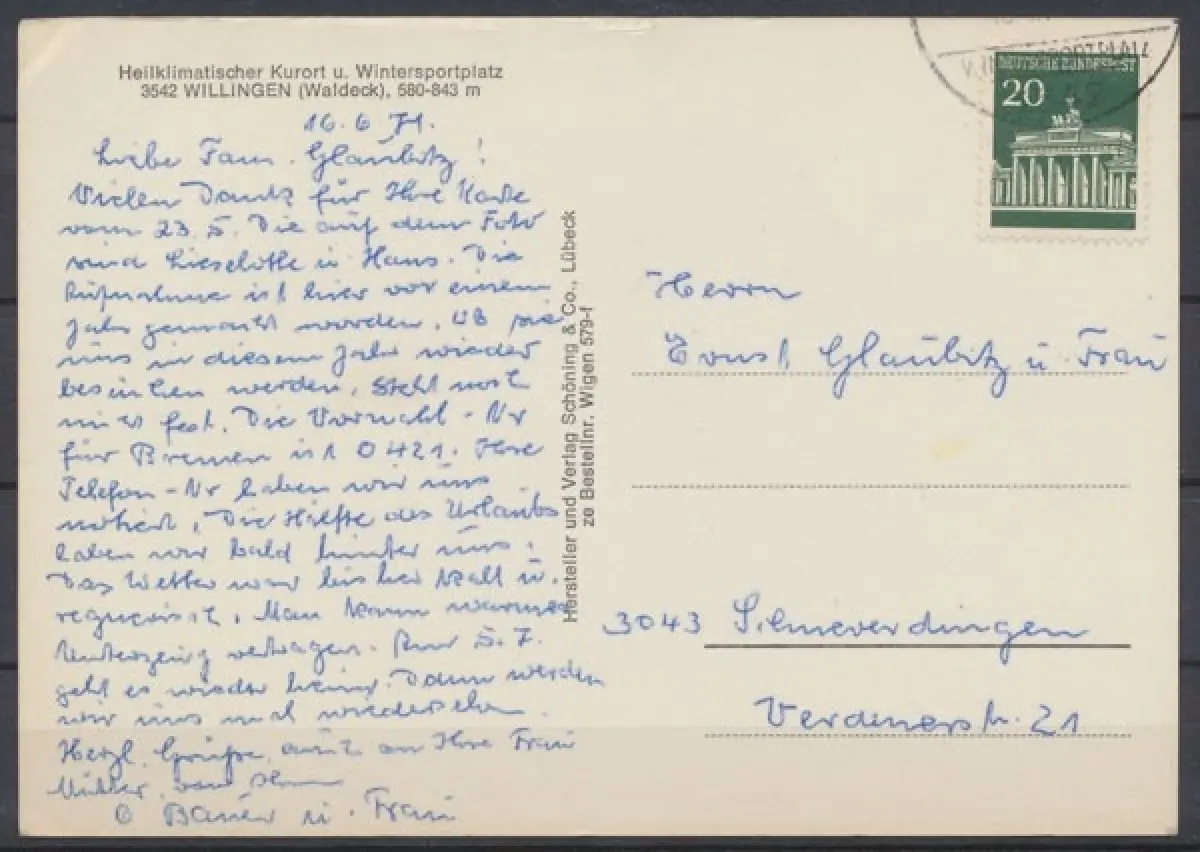 Heilklimatischer Kurort u. Wintersportplatz
3542 WILLINGEN (Waldeck), 580-843 m
16.6.71.
Liebe Fam. Glaubitz!
Vielen Dank für Ihre Karte
vom 23.5. Die auf dem Foto
sind Lieselotte u. Hans. Die
Aufnahme ist hier vor einem
Jahr gemacht worden. Ob sie
uns in diesem Jahr wieder
besuchen werden, steht noch
nicht fest. Die Vorwahl-Nr
für Bremen ist 0421. Ihre
Telefon-Nr haben wir uns
notiert. Die Hälfte des Urlaubs
haben wir bald hinter uns.
Das Wetter war bisher kalt u.
regnerisch. Man kann warmes
Unterzeug vertragen. Am 5.7.
geht es wieder heim. Dann werden
wir uns mal wiedersehen.
Herzl. Grüße, auch an Ihre Frau
Mutter, von Ihrem
G Bauer u. Frau
Hersteller und Verlag Schöning & Co., Lübeck
ze Bestellnr. Wigen 579-f
DEUTSCHE BUNDESPOST
20
Herrn
Ernst Glaubitz u. Frau
3043 Schneverdingen
Verdenerstr. 21